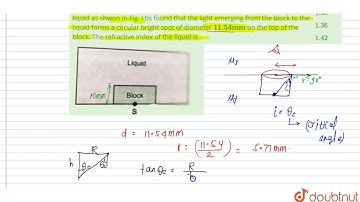 liquid as shwon in Fig. It is found that the light emerging from the block to the
liquid forms a circular bright spot of diameter 11.54mm on the top of the
block. The refractive index of the liquid is
1.36
1.42
Liquid
10mm
Block
S
d = 11.54 mm
r = (11.54/2) = 5.77 mm.
i = θc
(critical angle)
h
R
θc
θc
tan θc = R
doubtnut